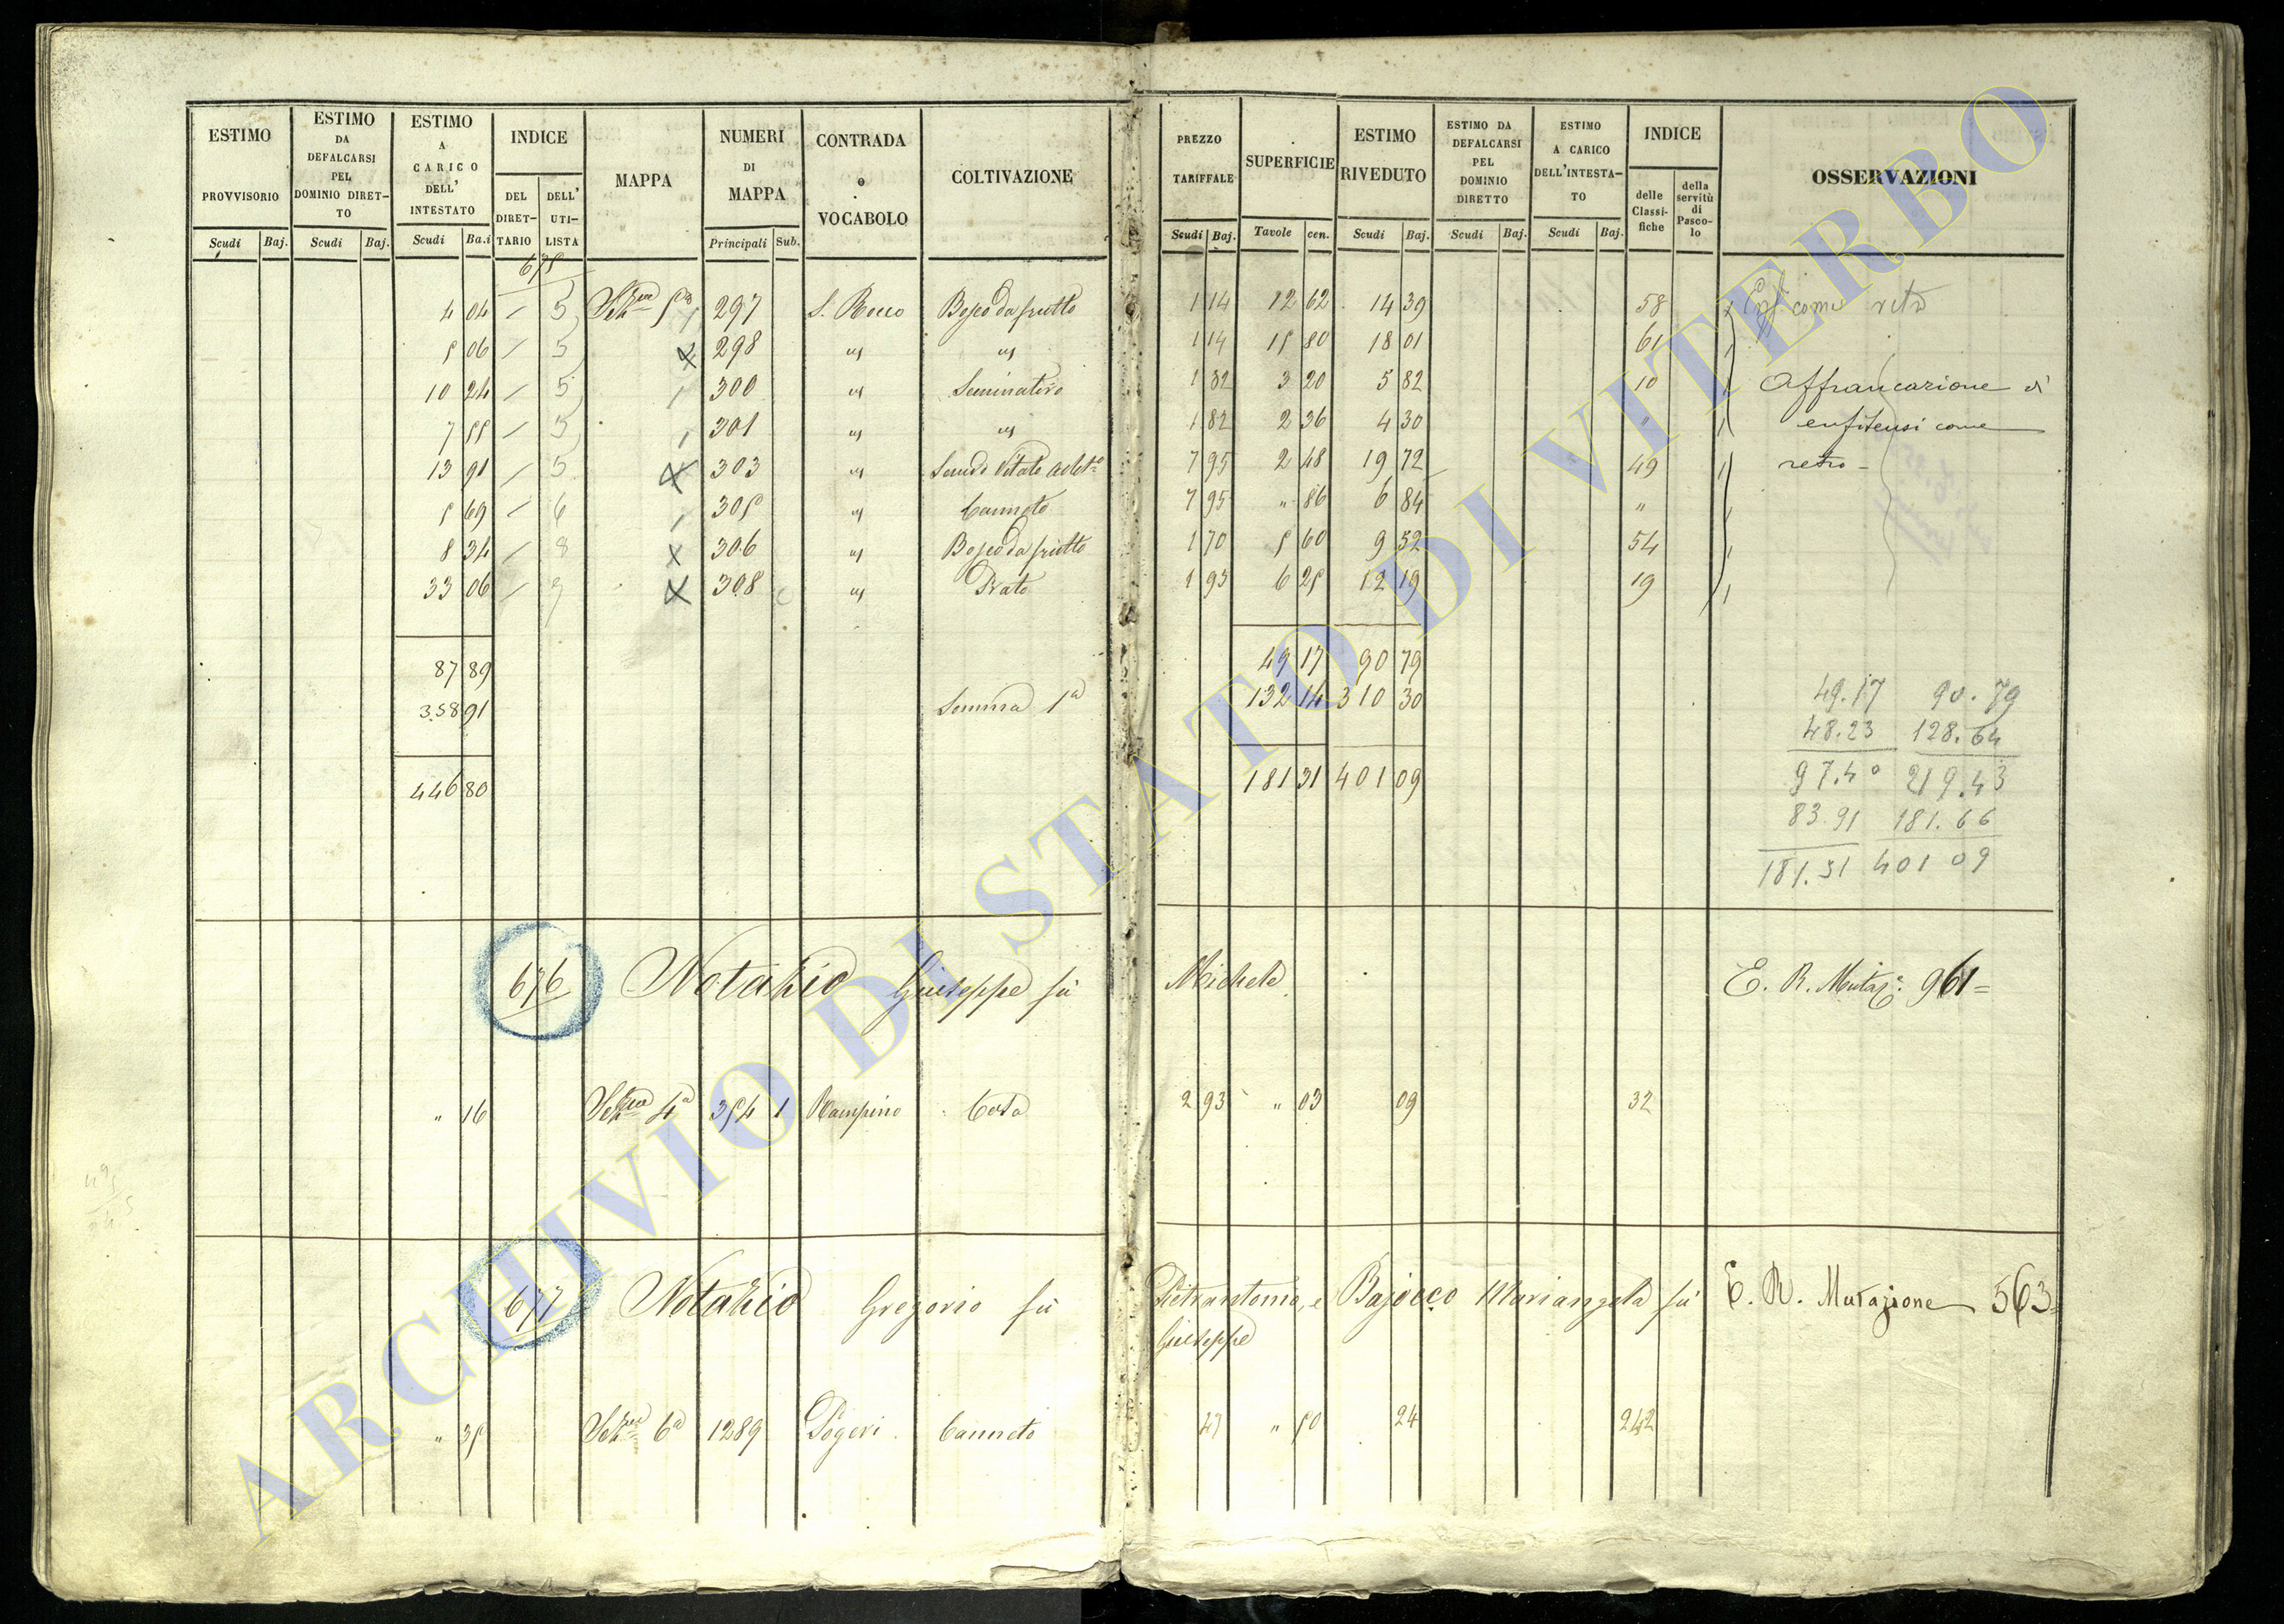 ESTIMO PROVVISORIO Scudi Baj.
ESTIMO DA DEFALCARSI PEL DOMINIO DIRET-TO Scudi Baj.
ESTIMO A CARICO DELL' INTESTATO Scudi Ba.i
INDICE DEL DIRET-TARIO DELL' UTI-LISTA
MAPPA
NUMERI DI MAPPA Principali Sub.
CONTRADA o VOCABOLO
COLTIVAZIONE
PREZZO TARIFFALE Scudi Baj.
SUPERFICIE Tavole cen.
ESTIMO RIVEDUTO Scudi Baj.
ESTIMO DA DEFALCARSI PEL DOMINIO DIRETTO Scudi Baj.
ESTIMO A CARICO DELL'INTESTA-TO Scudi Baj.
INDICE delle Classi-fiche della servitù di Pasco-lo
OSSERVAZIONI
675
4 04 5 5a 297 S. Rocco Bosco da frutto 1 14 12 62 14 39 58 Enf. come retro
5 06 5 298 " " 1 14 15 80 18 01 61
10 24 5 300 " Seminativo 1 82 3 20 5 82 10 Affrancazione di
7 55 5 301 " " 1 82 2 36 4 30 " enfiteusi come
13 91 5 303 " Vitato 7 95 2 48 19 72 49 retro -
5 69 6 305 " Canneto 7 95 " 86 6 84 "
8 34 8 306 " Bosco da frutto 1 70 5 60 9 52 54
33 06 9 308 " Prato 1 95 6 25 12 19 19
87 89 49 17 90 79
358 91 Somma 1a 132 14 310 30
446 80 181 31 401 09
49.17 90.79
48.23 128.64
97.40 219.43
83.91 181.66
181.31 401 09
676 Notazio Giuseppe fù Michele E. R. Mutaz.e 961=
" 16 4a 354 1 Rampino Costa 2 93 " 03 09 32
677 Notazio Gregorio fù Pietrantonio, e Bajocco Mariangela fù E. R. Mutazione 563=
Giuseppe
" 35 6a 1289 Pogeri Canneto 47 " 50 24 242
ARCHIVIO DI STATO DI VITERBO